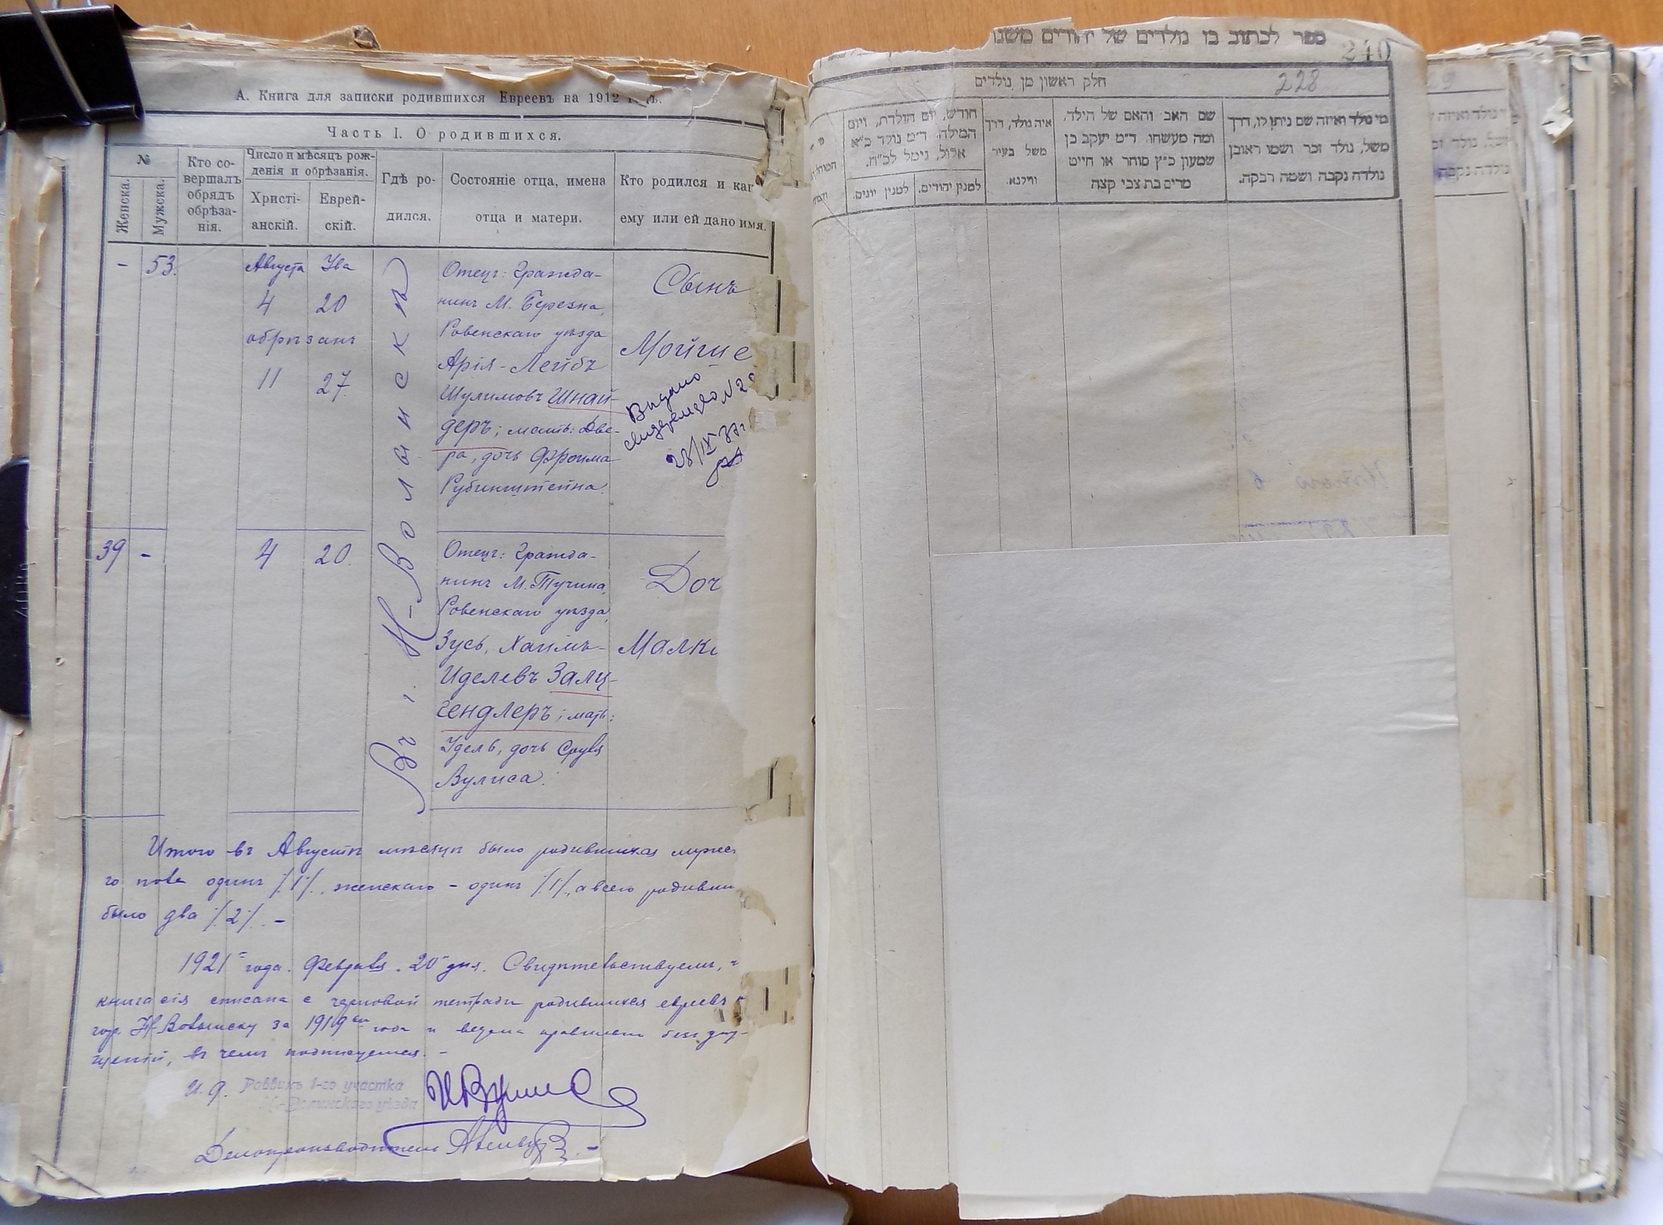 А. Книга для записки родившихся Евреевъ на 1912
Часть I. О родившихся.
№
Женска.
Мужска.
Кто со-
вершалъ
обрядъ
обрѣза-
нія.
Число и мѣсяцъ рож-
денія и обрѣзанія.
Христі-
анскій.
Еврей-
скій.
Гдѣ ро-
дился.
Состояніе отца, имена
отца и матери.
Кто родился и как
ему или ей дано имя.
- 53.
Августа
4 20
обрѣзанъ
11 27.
Въ г. Н-Волынскѣ
Отецъ: гражда-
нинъ М. Березна,
Ровенскаго уѣзда
Арія-Лейбъ
Шулимовъ Шнай-
деръ; мать: Две-
ра, дочь Фроима
Рубинштейна.
Сынъ
Мойше
Выдано
28/IX
39 -
4 20.
Отецъ: гражда-
нинъ М. Тучина,
Ровенскаго уѣзда,
Зусь, Хаимъ-
Иделевъ Залц-
гендлеръ; мать:
Удель, дочь Сруля
Вулиса.
Доч
Малк
Итого въ Августѣ мѣсяцѣ было родившихся мужес
го пола одинъ /1/, женскаго - одинъ /1/, а всего родивши
было два /2/. -
1921 года. Февраля 20 дня. Свидѣтельствуемъ,
книга сія списана с черновой тетради родившихся евреевъ
гор. Н-Волынску за 1919 года и ведена правильно без
въ чемъ подписуемся. -
И. д. Раввинъ 1-го участка
Н-Волынского уезда
Делопроизводитель
ספר לכתוב בו נולדים של יהודים משנו
240
חלק ראשון מן נולדים
228
מי נולד ואיזה שם ניתן לו, דרך
משל, נולד זכר ושמו ראובן
נולדה נקבה ושמה רבקה.
שם האב והאם של הילד,
ומה מעשהו. ד״מ יעקב בן
שמעון כ״ץ סוחר או חייט
מרים בת צבי קצה
איה נולד, דרך
משל בעיר
ווילנא.
חודש, יום הולדת, ויום
המילה. ד״מ נולד כ״א
אלול, נימל לכ״ח.
למנין יהודים.
למנין יונים.